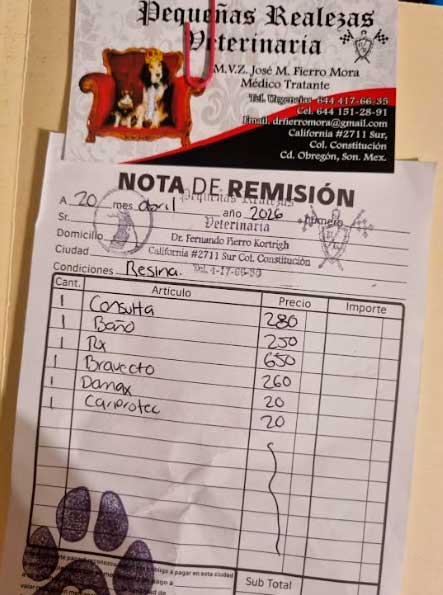 Pequeñas Realezas
Veterinaria
M.V.Z. José M. Fierro Mora
Médico Tratante
Tel. Urgencias 644 417-66-35
Cel. 644 151-28-91
Email. drfierromora@gmail.com
California #2711 Sur,
Col. Constitución
Cd. Obregón, Son. Mex.
NOTA DE REMISIÓN
Pequeñas Realezas
A 20 mes abril año 2026 Número
Sr. Veterinaria
Domicilio Dr. Fernando Fierro Kortrigh
Ciudad California #2711 Sur Col. Constitución
Condiciones Resina. Tel. 4-17-66-35
Cant. Articulo Precio Importe
1 Consulta 280
1 Baño 250
1 Rx 650
1 Bravecto 260
1 Domax 20
1 Cariprotec 20
Sub Total